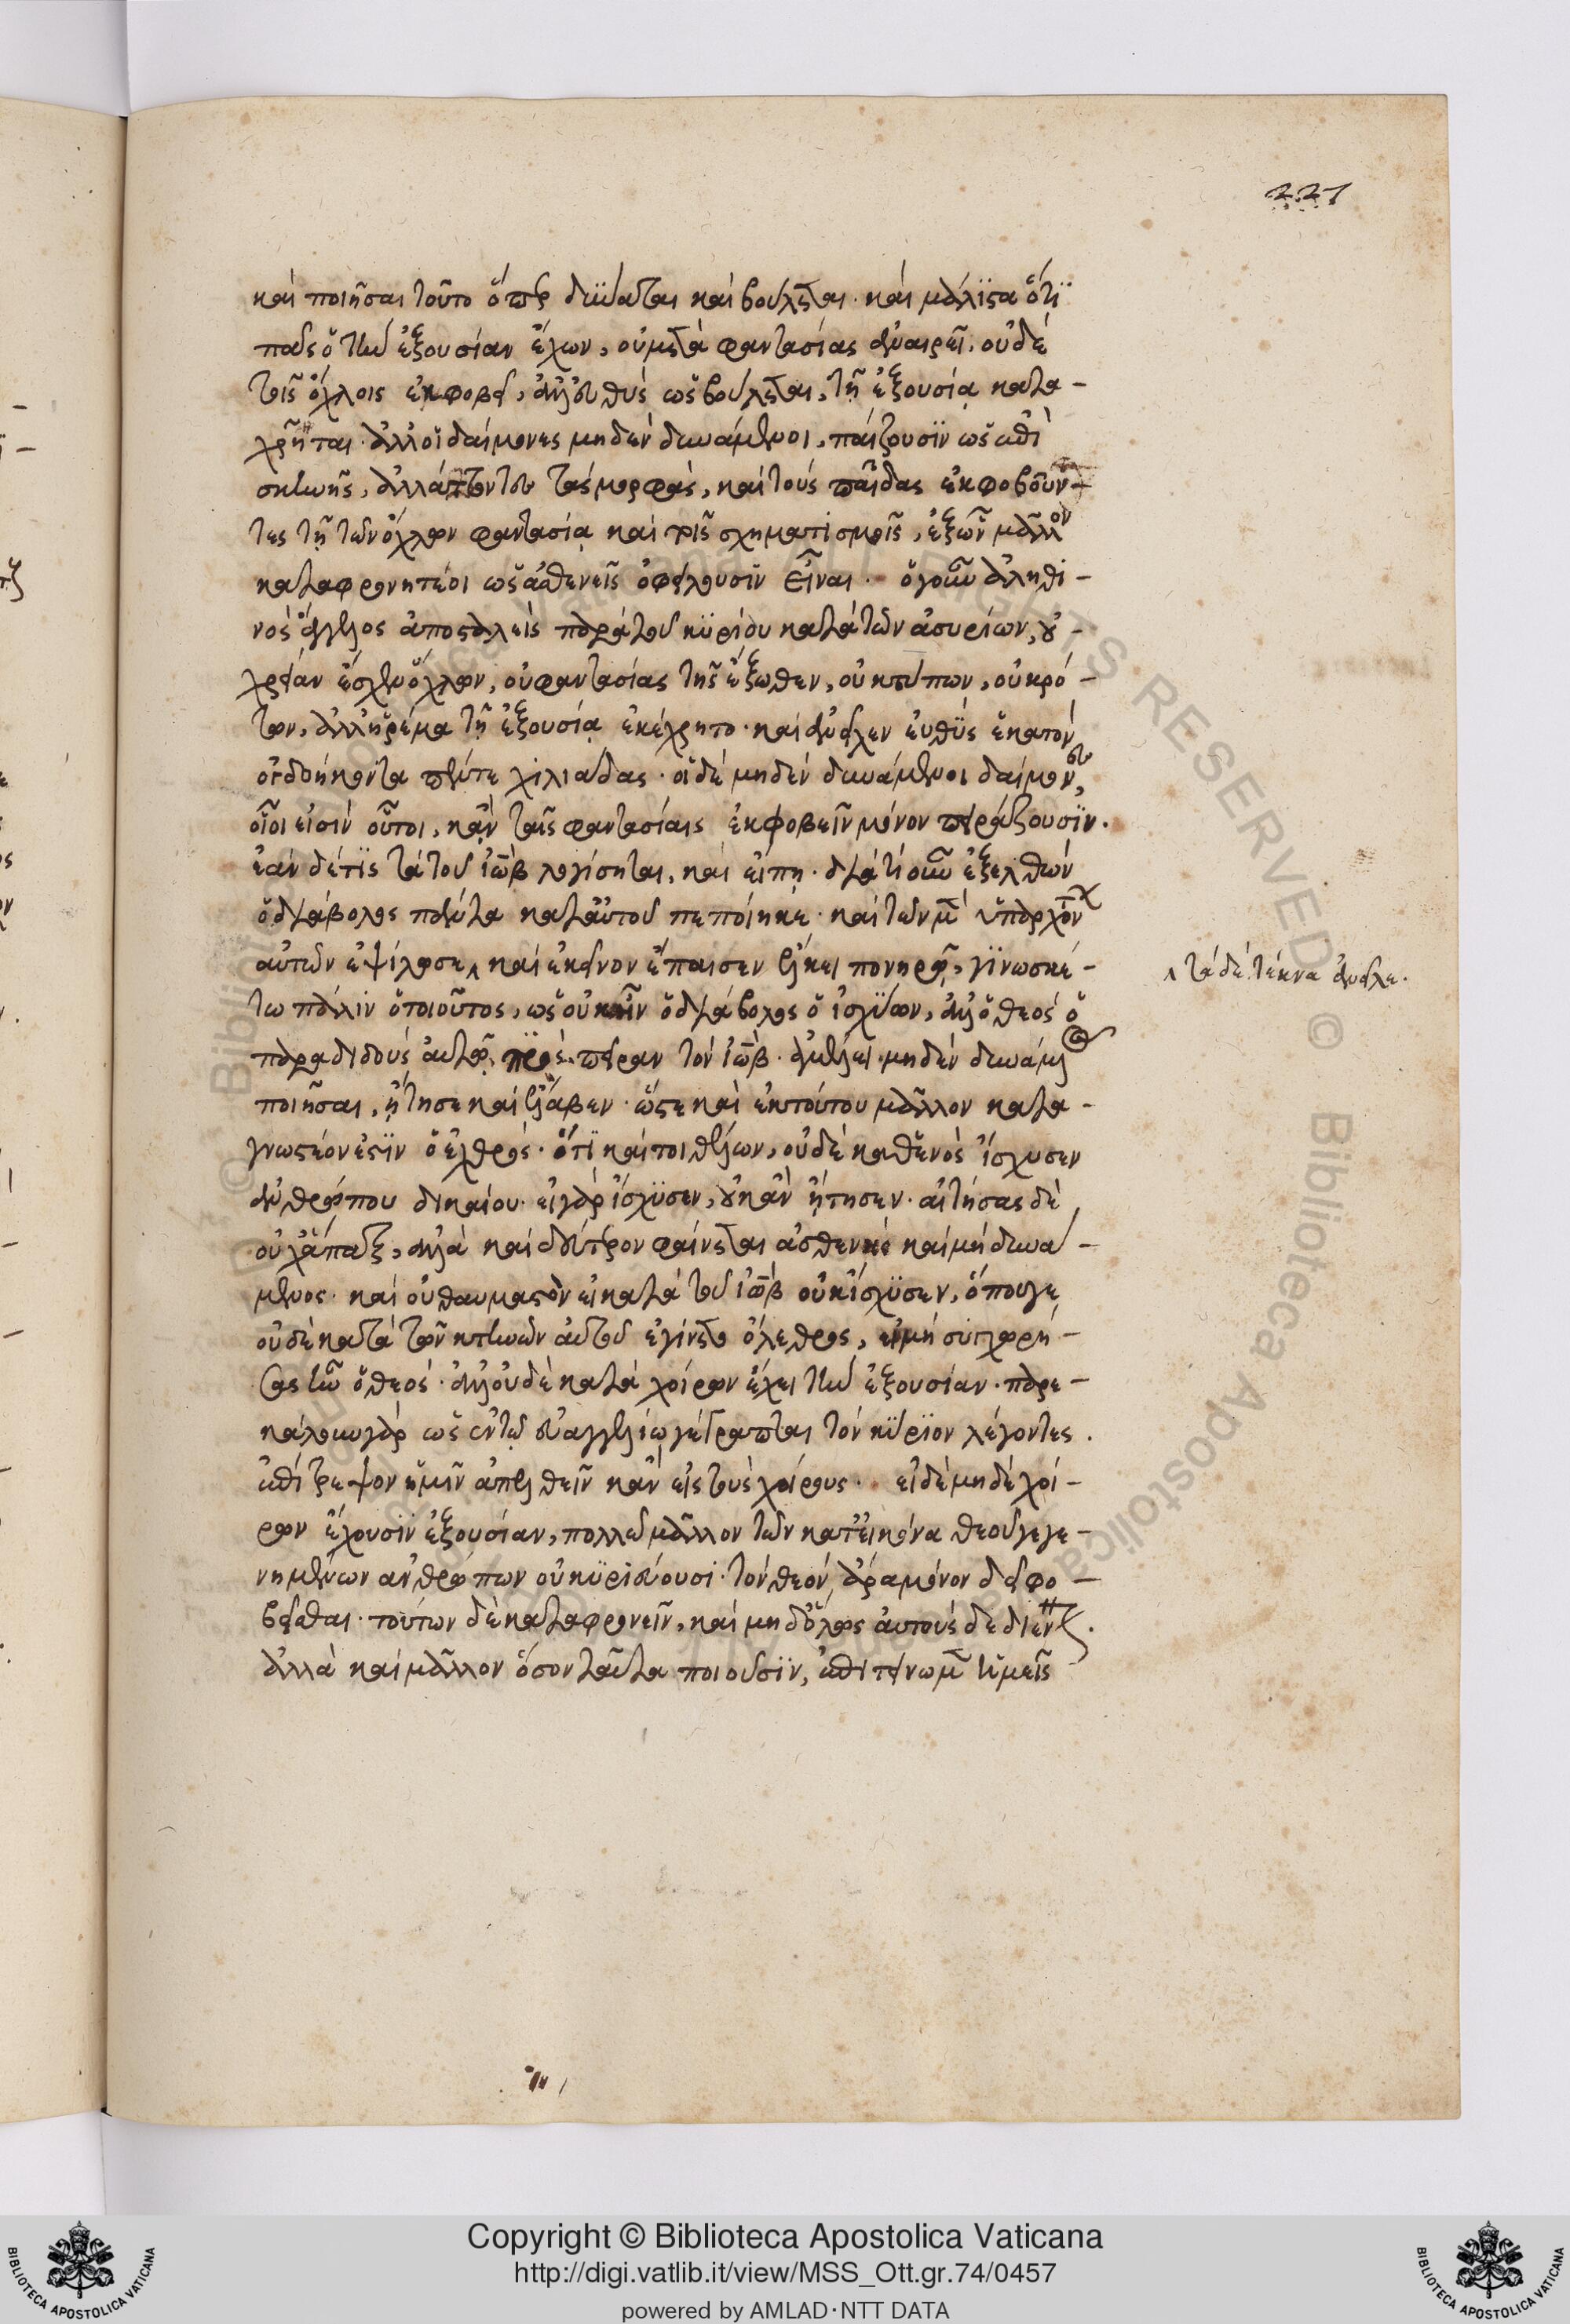 227
καὶ ποιῆσαι τοῦτο ὅπερ δύναται καὶ βούλεται· καὶ μάλιστα ὅτι
πᾶς ὁ τὴν ἐξουσίαν ἔχων, οὐ μετὰ φαντασίας ἀναιρεῖ, οὐδὲ
τοῖς ὄχλοις ἐκφοβεῖ, ἀλλ' εὐθὺς ὡς βούλεται, τῇ ἐξουσίᾳ κατα-
χρῆται· ἀλλ' οἱ δαίμονες μηδὲν δυνάμενοι, παίζουσιν ὡς ἐπὶ
σκηνῆς, ἀλλάττοντες τὰς μορφὰς, καὶ τοὺς παῖδας ἐκφοβοῦν-
τες τῇ τῶν ὄχλων φαντασίᾳ καὶ τοῖς σχηματισμοῖς, ἐξ ὧν μᾶλλον
καταφρονητέοι ὡς ἀσθενεῖς ὀφείλουσιν εἶναι· ὁ γοῦν ἀληθι-
νὸς ἄγγελος ἀποσταλεὶς παρὰ τοῦ κυρίου κατὰ τῶν ἀσυρίων, οὐ
χρείαν ἔσχεν ὄχλων, οὐ φαντασίας τῆς ἔξωθεν, οὐ κτύπων, οὐ κρό-
των, ἀλλ' ἠρέμα τῇ ἐξουσίᾳ ἐκέχρητο· καὶ ἀνεῖλεν εὐθὺς ἑκατὸν
ὀγδοήκοντα πέντε χιλιάδας· οἱ δὲ μηδὲν δυνάμενοι δαίμονες,
οἷοι εἰσὶν οὗτοι, κἂν ταῖς φαντασίαις ἐκφοβεῖν μόνον πειράζουσιν.
ἐὰν δέ τις τὰ τοῦ ἰὼβ λογίσηται, καὶ εἴπῃ· διὰ τί οὖν ἐξελθὼν
ὁ διάβολος πάντα κατ' αὐτοῦ πεποίηκε· καὶ τῶν μὲν ὑπαρχόντων
αὐτὸν ἐψίλωσε, ‸ καὶ ἐκεῖνον ἔπαισεν ἕλκει πονηρῷ, γινωσκέ-
‸ τὰ δὲ τέκνα ἀνεῖλε.
τω πάλιν ὁ τοιοῦτος, ὡς οὐκ ἦν ὁ διάβολος ὁ ἰσχύων, ἀλλ' ὁ θεὸς ὁ
παραδιδοὺς αὐτῷ πρὸς πεῖραν τὸν ἰὼβ· ἀμέλει· μηδὲν δυνάμενος
ποιῆσαι, ᾔτησε καὶ ἔλαβεν· ὥστε καὶ ἐκ τούτου μᾶλλον κατα-
γνωστέον ἐστὶν ὁ ἐχθρὸς· ὅτι καίτοι θέλων, οὐδὲ καθ' ἑνὸς ἴσχυσεν
ἀνθρώπου δικαίου· εἰ γὰρ ἴσχυσεν, οὐκ ἂν ᾔτησεν· αἰτήσας δὲ
οὐχ ἅπαξ, ἀλλὰ καὶ δεύτερον φαίνεται ἀσθενὴς καὶ μὴ δυνά-
μενος· καὶ οὐ θαυμαστὸν εἰ κατὰ τοῦ ἰὼβ οὐκ ἴσχυσεν, ὅπου γε
οὐδὲ κατὰ τῶν κτηνῶν αὐτοῦ ἐγίνετο ὄλεθρος, εἰ μὴ συγχωρή-
σας ἦν ὁ θεὸς· ἀλλ' οὐδὲ κατὰ χοίρων ἔχει τὴν ἐξουσίαν· παρε-
κάλουν γὰρ ὡς ἐν τῷ εὐαγγελίῳ γέγραπται τὸν κύριον λέγοντες.
ἐπίτρεψον ἡμῖν ἀπελθεῖν κἂν εἰς τοὺς χοίρους· εἰ δὲ μηδὲ χοί-
ρων ἔχουσιν ἐξουσίαν, πολλῷ μᾶλλον τῶν κατ' εἰκόνα θεοῦ γεγε-
νημένων ἀνθρώπων οὐ κυριεύουσι· τὸν θεὸν ἄρα μόνον δεῖ φο-
βεῖσθαι· τούτων δὲ καταφρονεῖν, καὶ μηδ' ὅλως αὐτοὺς δεδιέναι.
ἀλλὰ καὶ μᾶλλον ὅσον ταῦτα ποιοῦσιν, ἐπιτείνωμεν ἡμεῖς
Copyright © Biblioteca Apostolica Vaticana
http://digi.vatlib.it/view/MSS_Ott.gr.74/0457
powered by AMLAD·NTT DATA